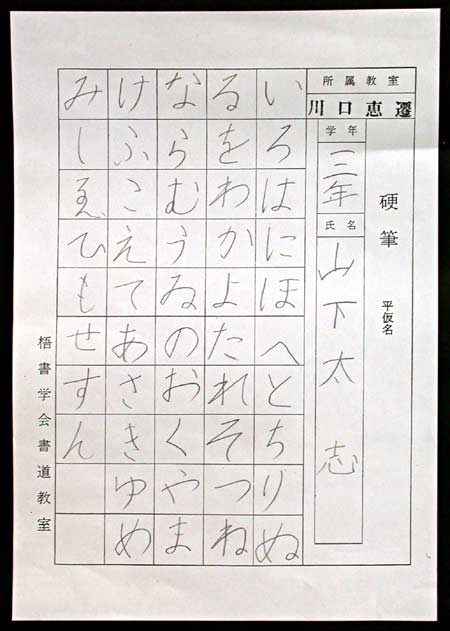 硬筆 平仮名
所属教室
川口恵遷
学年
三年
氏名
山下太志
いろはにほへとちりぬ
るをわかよたれそつね
ならむうゐのおくやま
けふこえてあさきゆめ
みしゑひもせすん
梧書学会書道教室